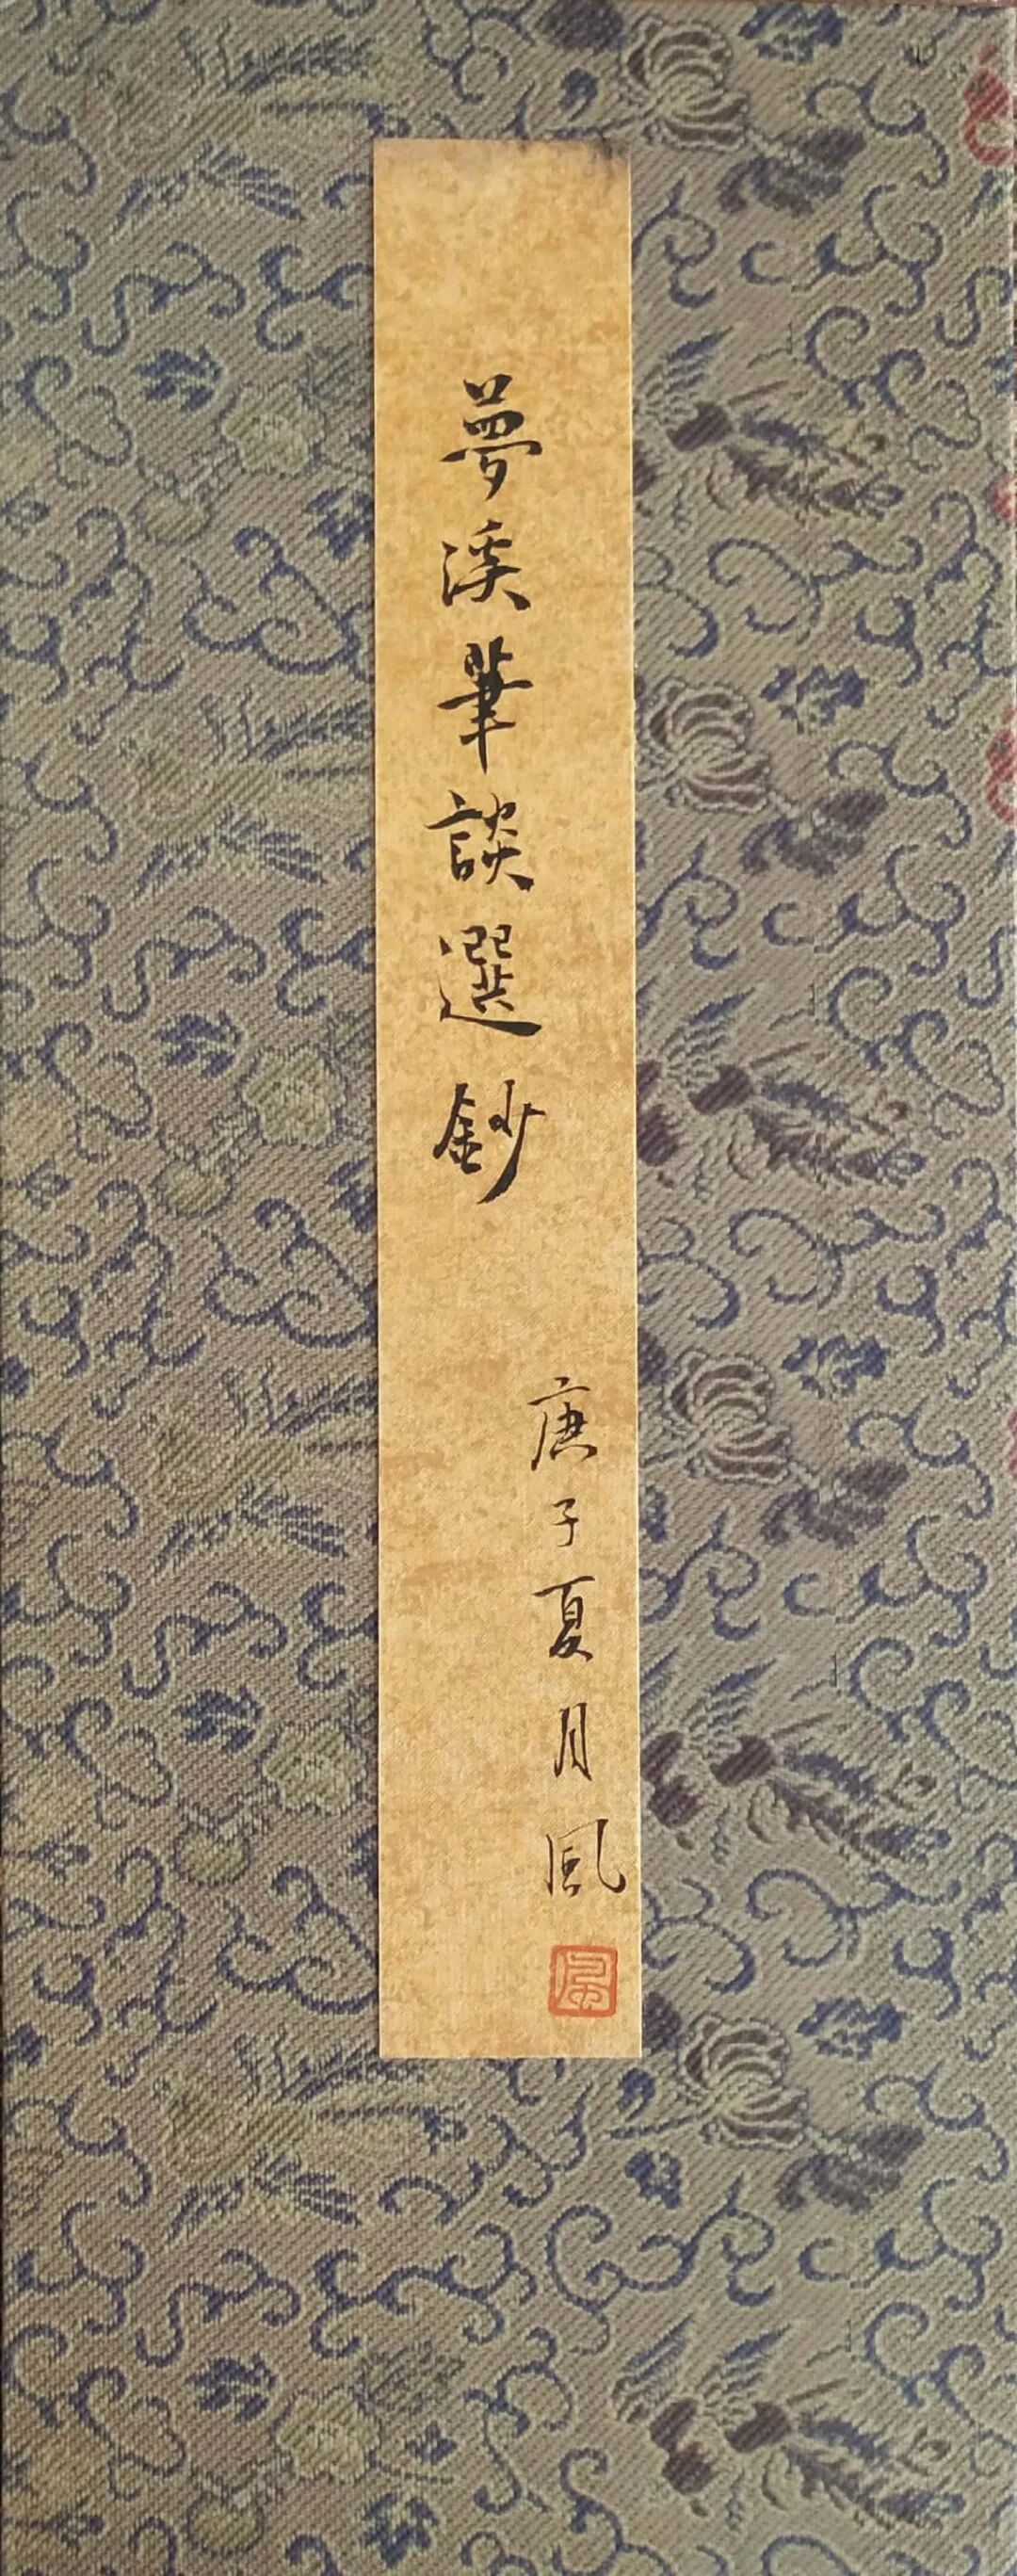 夢溪筆談選鈔
庚子夏月風
風